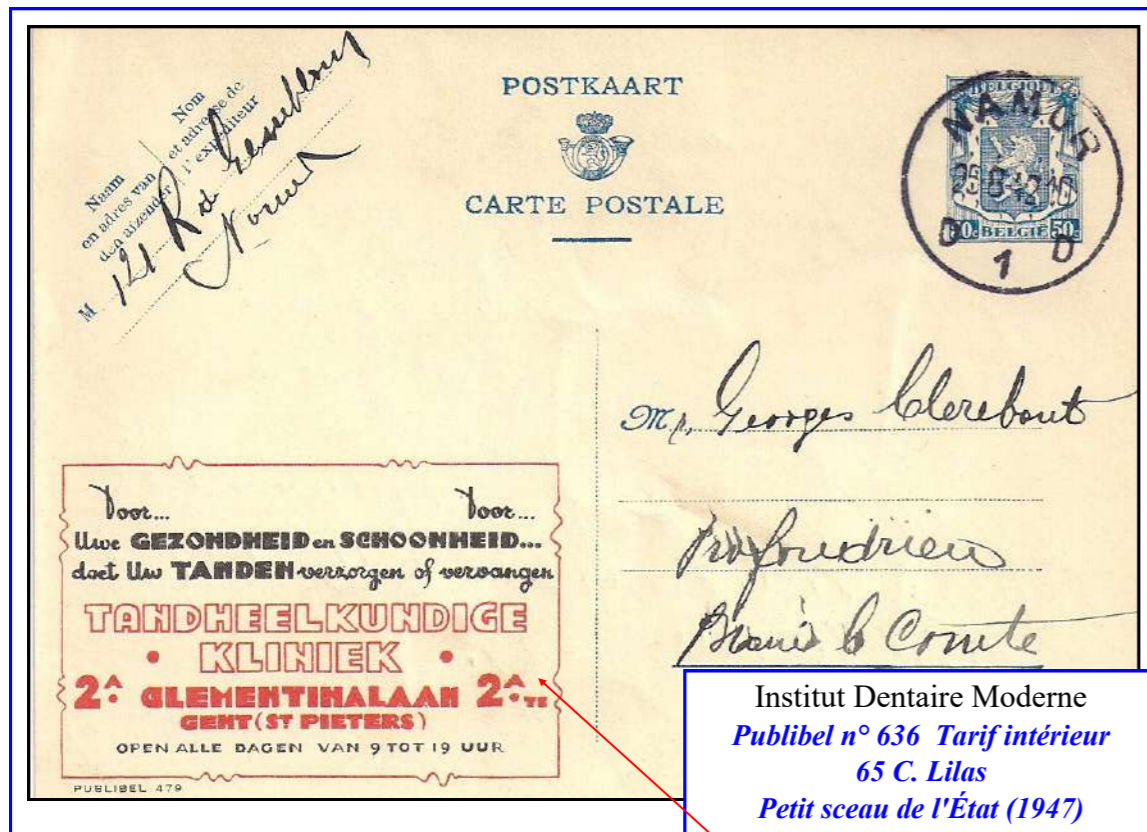 Nom
et adresse de
l'expéditeur
Naam
en adres van
den afzender
M 121 Rd
POSTKAART
CARTE POSTALE
BELGIQUE
50c BELGIË 50c
NAMUR
D 1 D
Mr Georges Clerebout
Braine le Comte
Voor... Voor...
Uwe GEZONDHEID en SCHOONHEID...
doet Uw TANDEN verzorgen of vervangen
TANDHEELKUNDIGE
• KLINIEK •
2A CLEMENTINALAAN 2A TE
GENT (ST PIETERS)
OPEN ALLE DAGEN VAN 9 TOT 19 UUR
PUBLIBEL 479
Institut Dentaire Moderne
Publibel n° 636 Tarif intérieur
65 C. Lilas
Petit sceau de l'État (1947)